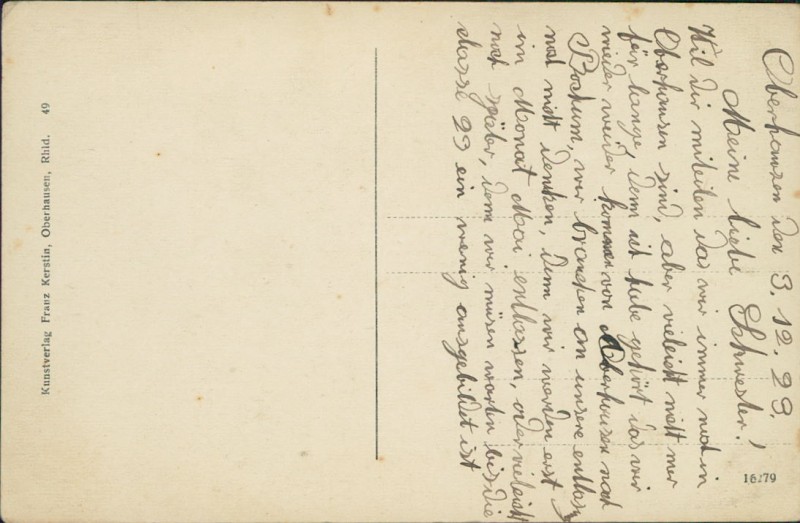 Oberhausen den 3.12.29.
Meine liebe Schwester!
Wil dir miteilen das wir immer noch in
Oberhausen sind, aber vieleicht nicht mer
für lange, denn ich habe gehört das wir
wieder von Oberhausen nach
Bochum, wir brauchen an unsere entlasz
noch nicht denken, denn wir werden erst
im Monat Mai entlassen, oder vieleicht
noch später, denn wir müsen warten bis die
classe 29 ein wenig ausgebildet ist
Kunstverlag Franz Kerstin, Oberhausen, Rhld. 49
16279